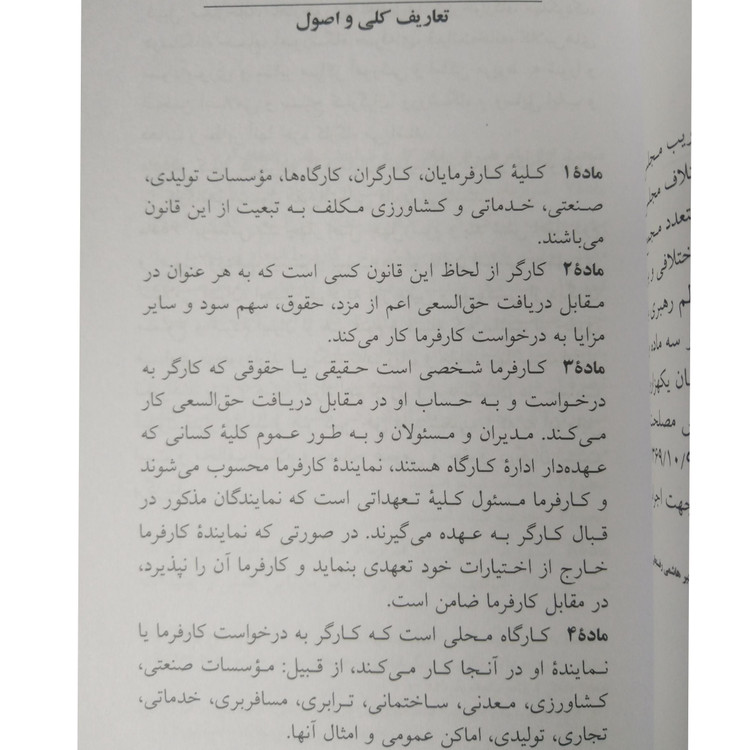 تعاریف کلی و اصول
مادۀ ۱ کلیۀ کارفرمایان، کارگران، کارگاه‌ها، مؤسسات تولیدی،
صنعتی، خدماتی و کشاورزی مکلف به تبعیت از این قانون
می‌باشند.
مادۀ ۲ کارگر از لحاظ این قانون کسی است که به هر عنوان در
مقابل دریافت حق‌السعی اعم از مزد، حقوق، سهم سود و سایر
مزایا به درخواست کارفرما کار می‌کند.
مادۀ ۳ کارفرما شخصی است حقیقی یا حقوقی که کارگر به
درخواست و به حساب او در مقابل دریافت حق‌السعی کار
می‌کند. مدیران و مسئولان و به طور عموم کلیۀ کسانی که
عهده‌دار ادارۀ کارگاه هستند، نمایندۀ کارفرما محسوب می‌شوند
و کارفرما مسئول کلیۀ تعهداتی است که نمایندگان مذکور در
قبال کارگر به عهده می‌گیرند. در صورتی که نمایندۀ کارفرما
خارج از اختیارات خود تعهدی بنماید و کارفرما آن را نپذیرد،
در مقابل کارفرما ضامن است.
مادۀ ۴ کارگاه محلی است که کارگر به درخواست کارفرما یا
نمایندۀ او در آنجا کار می‌کند، از قبیل: مؤسسات صنعتی،
کشاورزی، معدنی، ساختمانی، ترابری، مسافربری، خدماتی،
تجاری، تولیدی، اماکن عمومی و امثال آنها.